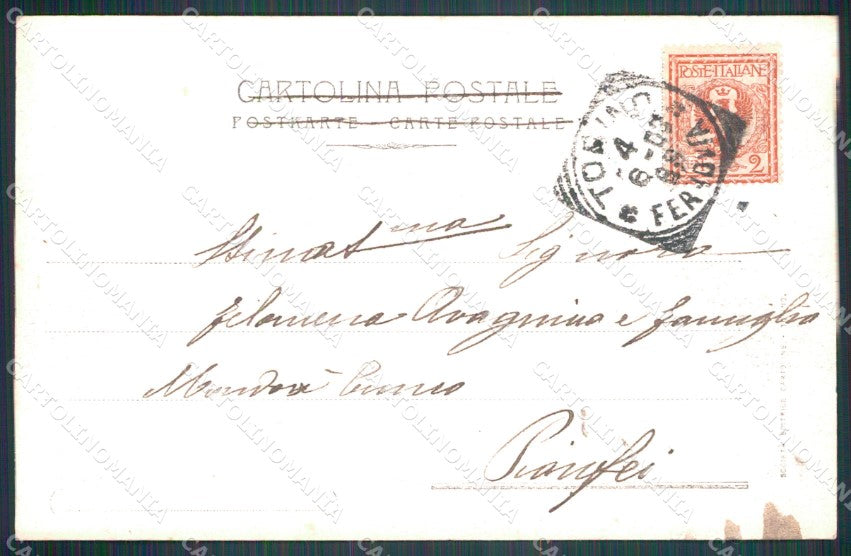 CARTOLINA POSTALE
POSTKARTE - CARTE POSTALE
POSTE ITALIANE
2
TORINO
FERROVIA
Stimat ma Signora
Filomena Avagnina e famiglia
Mondovì Cuneo
Pianfei
CARTOLINOMANIA